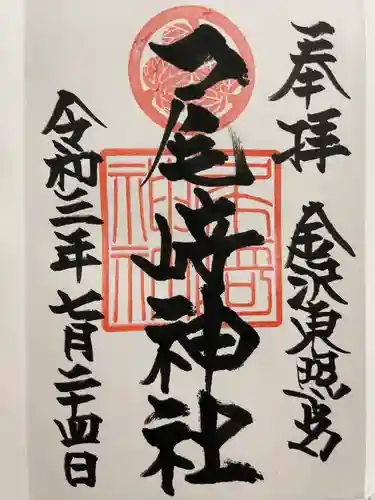 奉拝
金沢東照宮
尾﨑神社
尾﨑神社
令和三年七月二十四日